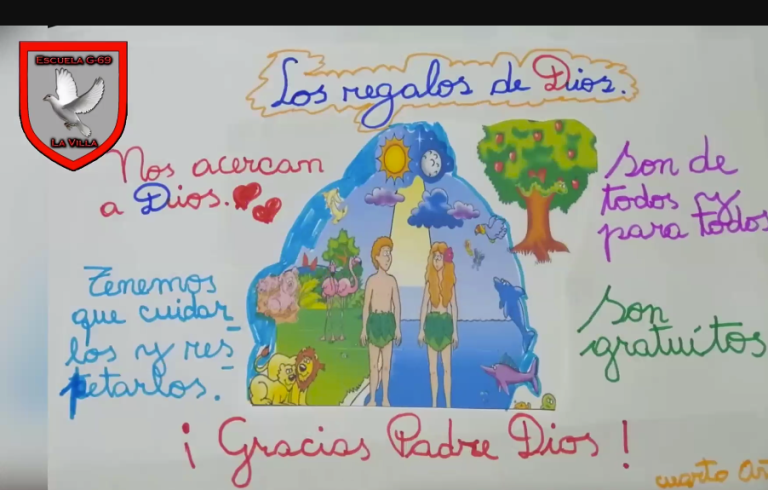 ESCUELA G-69
LA VILLA
Los regalos de Dios.
Nos acercan
a Dios.
Tenemos
que cuidar_
los y res_
petarlos.
Son de
todos y
para todos
Son
gratuítos
¡Gracias Padre Dios!
cuarto